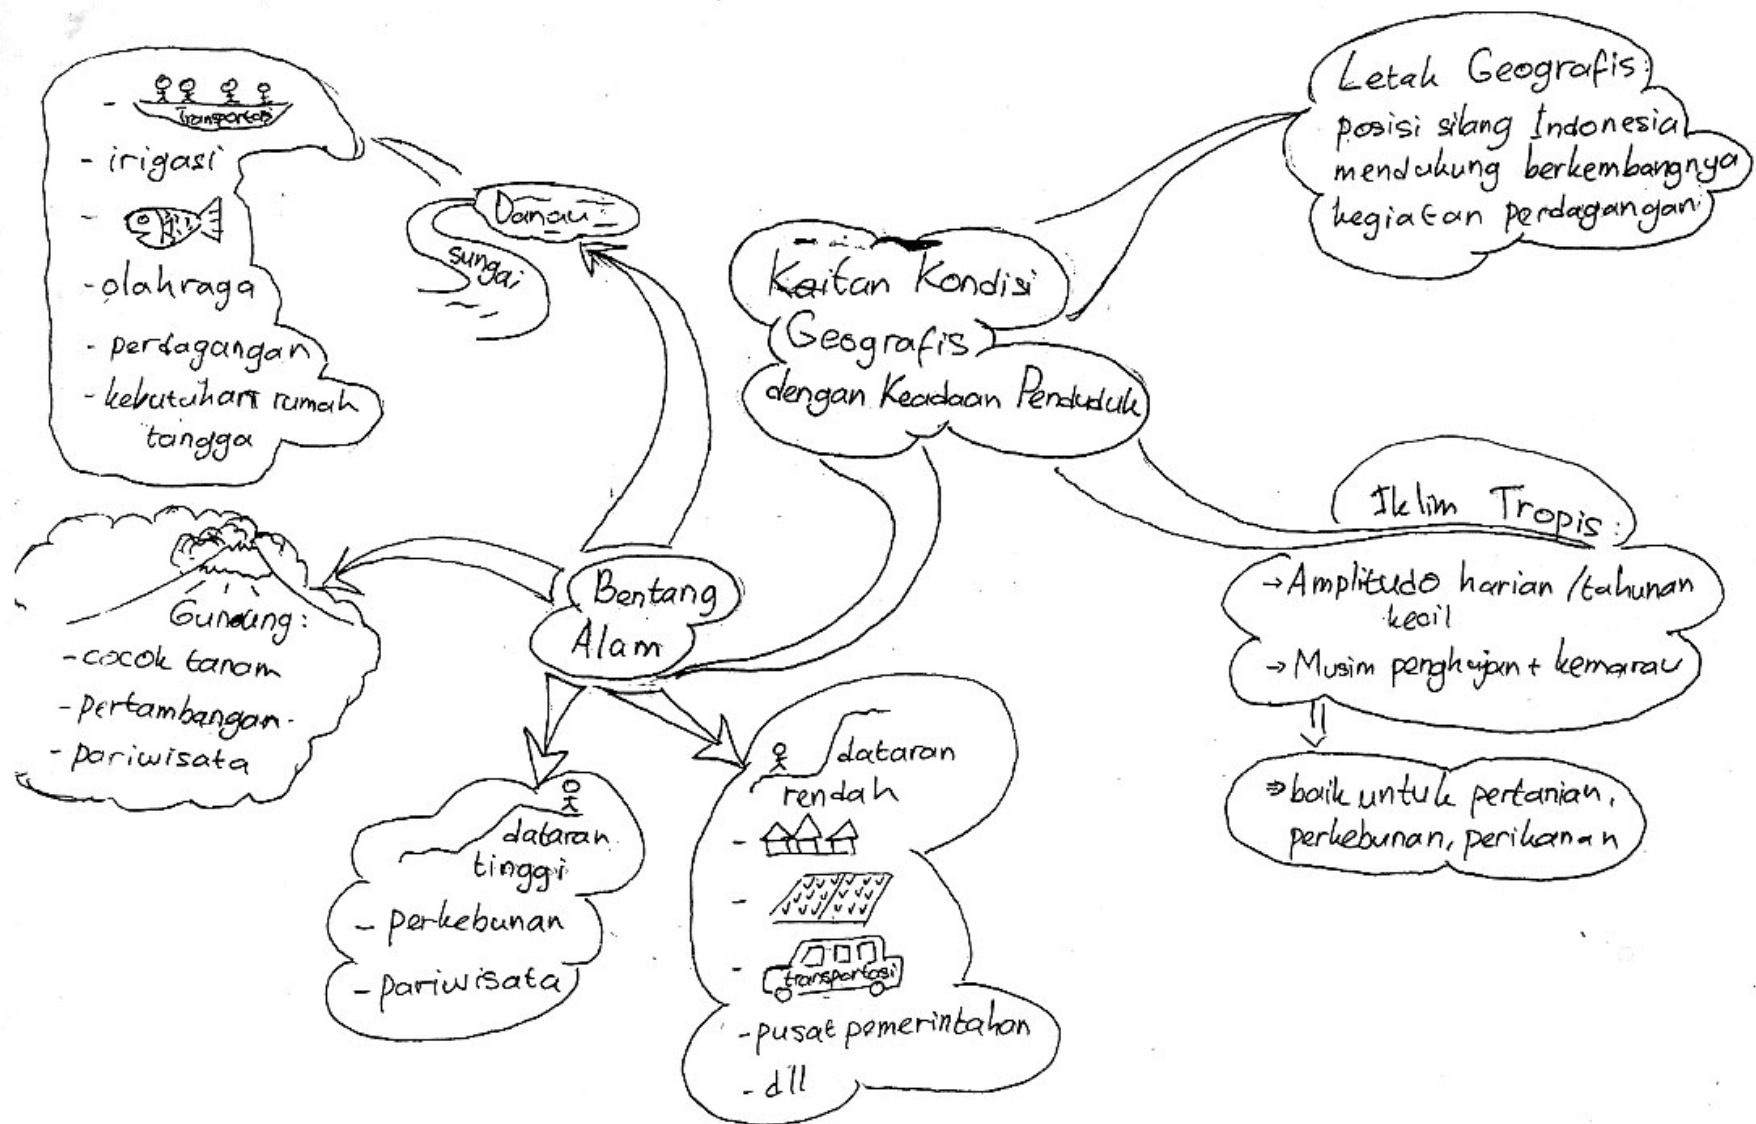 Kaitan Kondisi
Geografis
dengan Keadaan Penduduk
Letak Geografis:
posisi silang Indonesia
mendukung berkembangnya
kegiatan perdagangan
Iklim Tropis:
→ Amplitudo harian /tahunan
kecil
→ Musim penghujan + kemarau
⇒ baik untuk pertanian,
perkebunan, perikanan
Bentang
Alam
Danau
sungai
- Transportasi
- irigasi
-
- olahraga
- perdagangan
- kebutuhan rumah
tangga
Gunung:
- cocok tanam
- pertambangan
- pariwisata
dataran
tinggi
- perkebunan
- pariwisata
dataran
rendah
-
-
- transportasi
- pusat pemerintahan
- dll